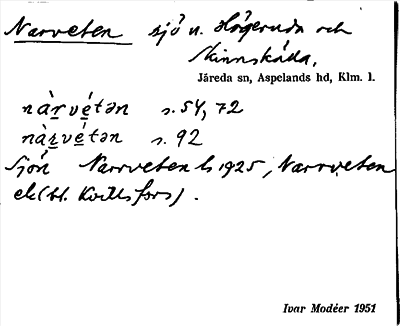 Narrveten sjö n. Högeruda och
Skinnskáda,
Järeda sn, Aspelands hd, Klm. l.
nàrvétən s. 54, 72
nàrvétən s. 92
Sjön Narrveten ls 1925, Narrveten
ek (bl. Kvillsfors).
Ivar Modéer 1951